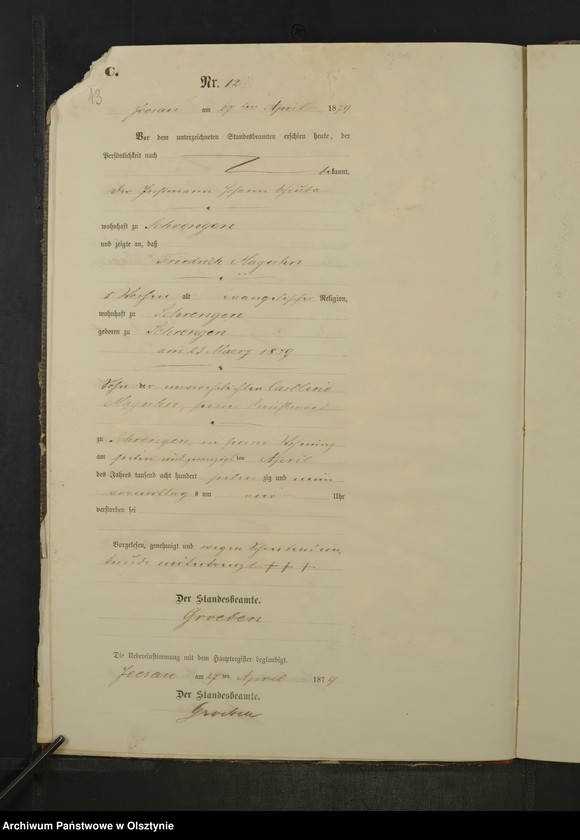 C.
13
Nr. 12
Jeesau am 27ten April 1879
Vor dem unterzeichneten Standesbeamten erschien heute, der
Persönlichkeit nach
bekannt,
der Instmann Johann
wohnhaft zu Schrengen
und zeigte an, daß
Friedrich
5 Wochen alt evangelischer Religion,
wohnhaft zu Schrengen
geboren zu Schrengen
am 23 Maerz 1879
Sohn der unverehelichten
zu Schrengen, in seiner Wohnung
am sieben und zwanzigsten April
des Jahres tausend acht hundert siebenzig und neun
vormittags um Uhr
verstorben sei
Vorgelesen, genehmigt und wegen
+ + +
Der Standesbeamte.
Groeben
Die Uebereinstimmung mit dem Hauptregister beglaubigt.
Jeesau am 27ten April 1879
Der Standesbeamte.
Groeben
Archiwum Państwowe w Olsztynie